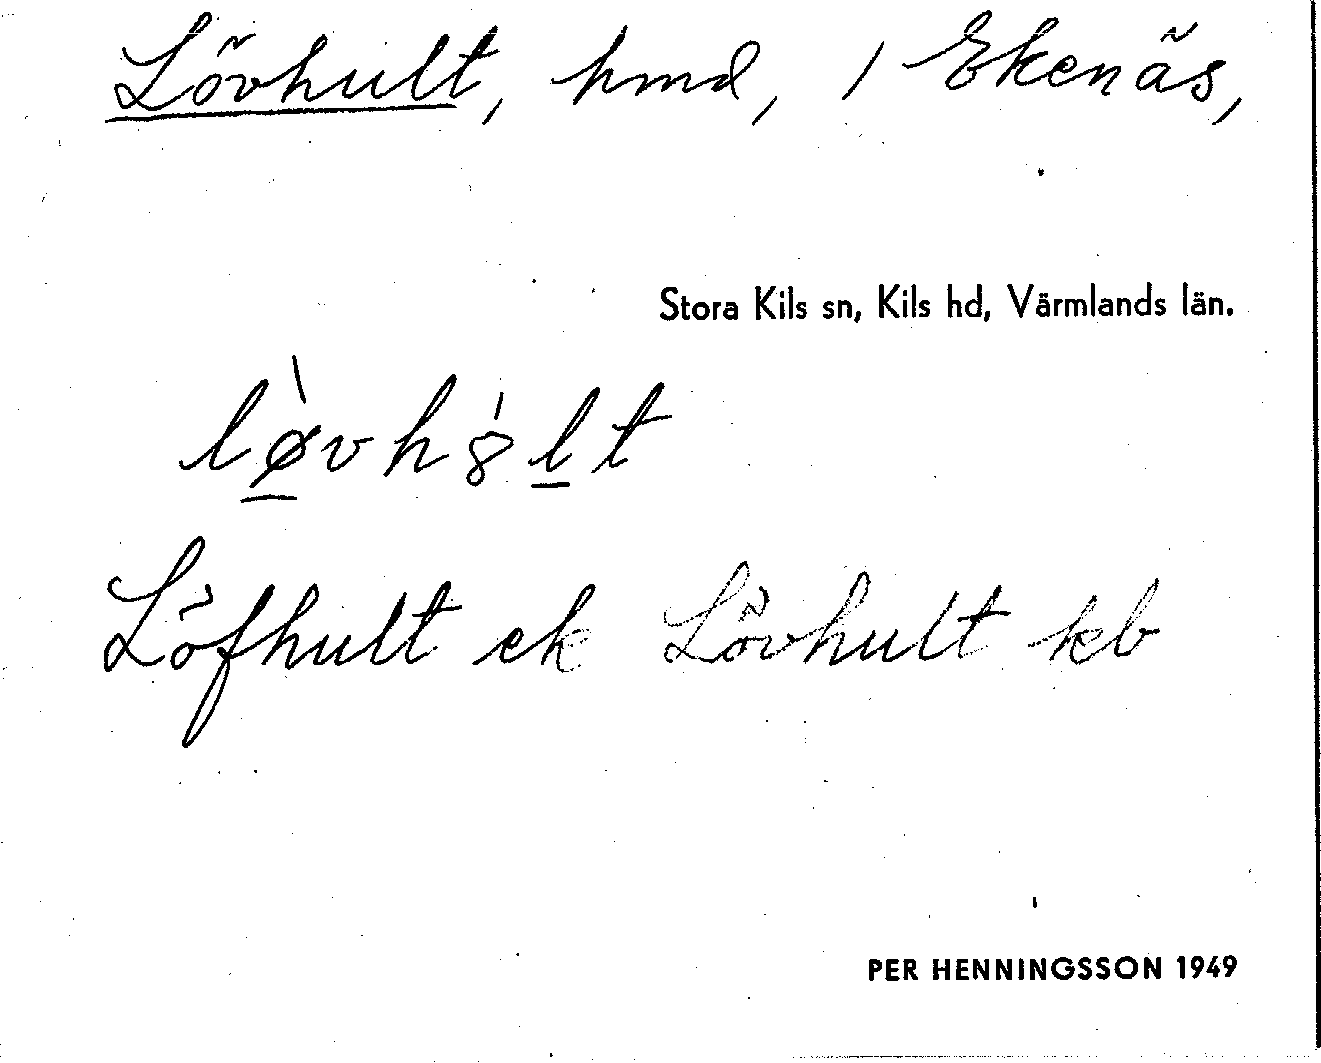 Lövhult, hmd, 1 Ekenäs,
Stora Kils sn, Kils hd, Värmlands län.
lø̀vh8̍lt
Löfhult ek Lövhult kb
PER HENNINGSSON 1949